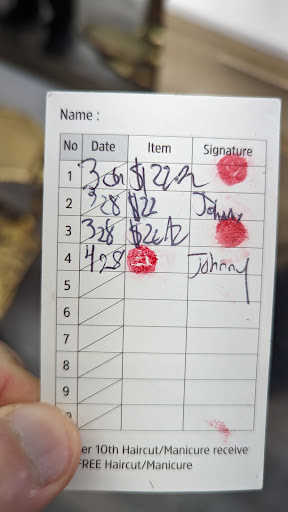 Name :
No Date Item Signature
1
2 3 28 $22 Johnny
3 3 28
4 4 28 Johnny
5
6
7
8
9
er 10th Haircut/Manicure receive
FREE Haircut/Manicure